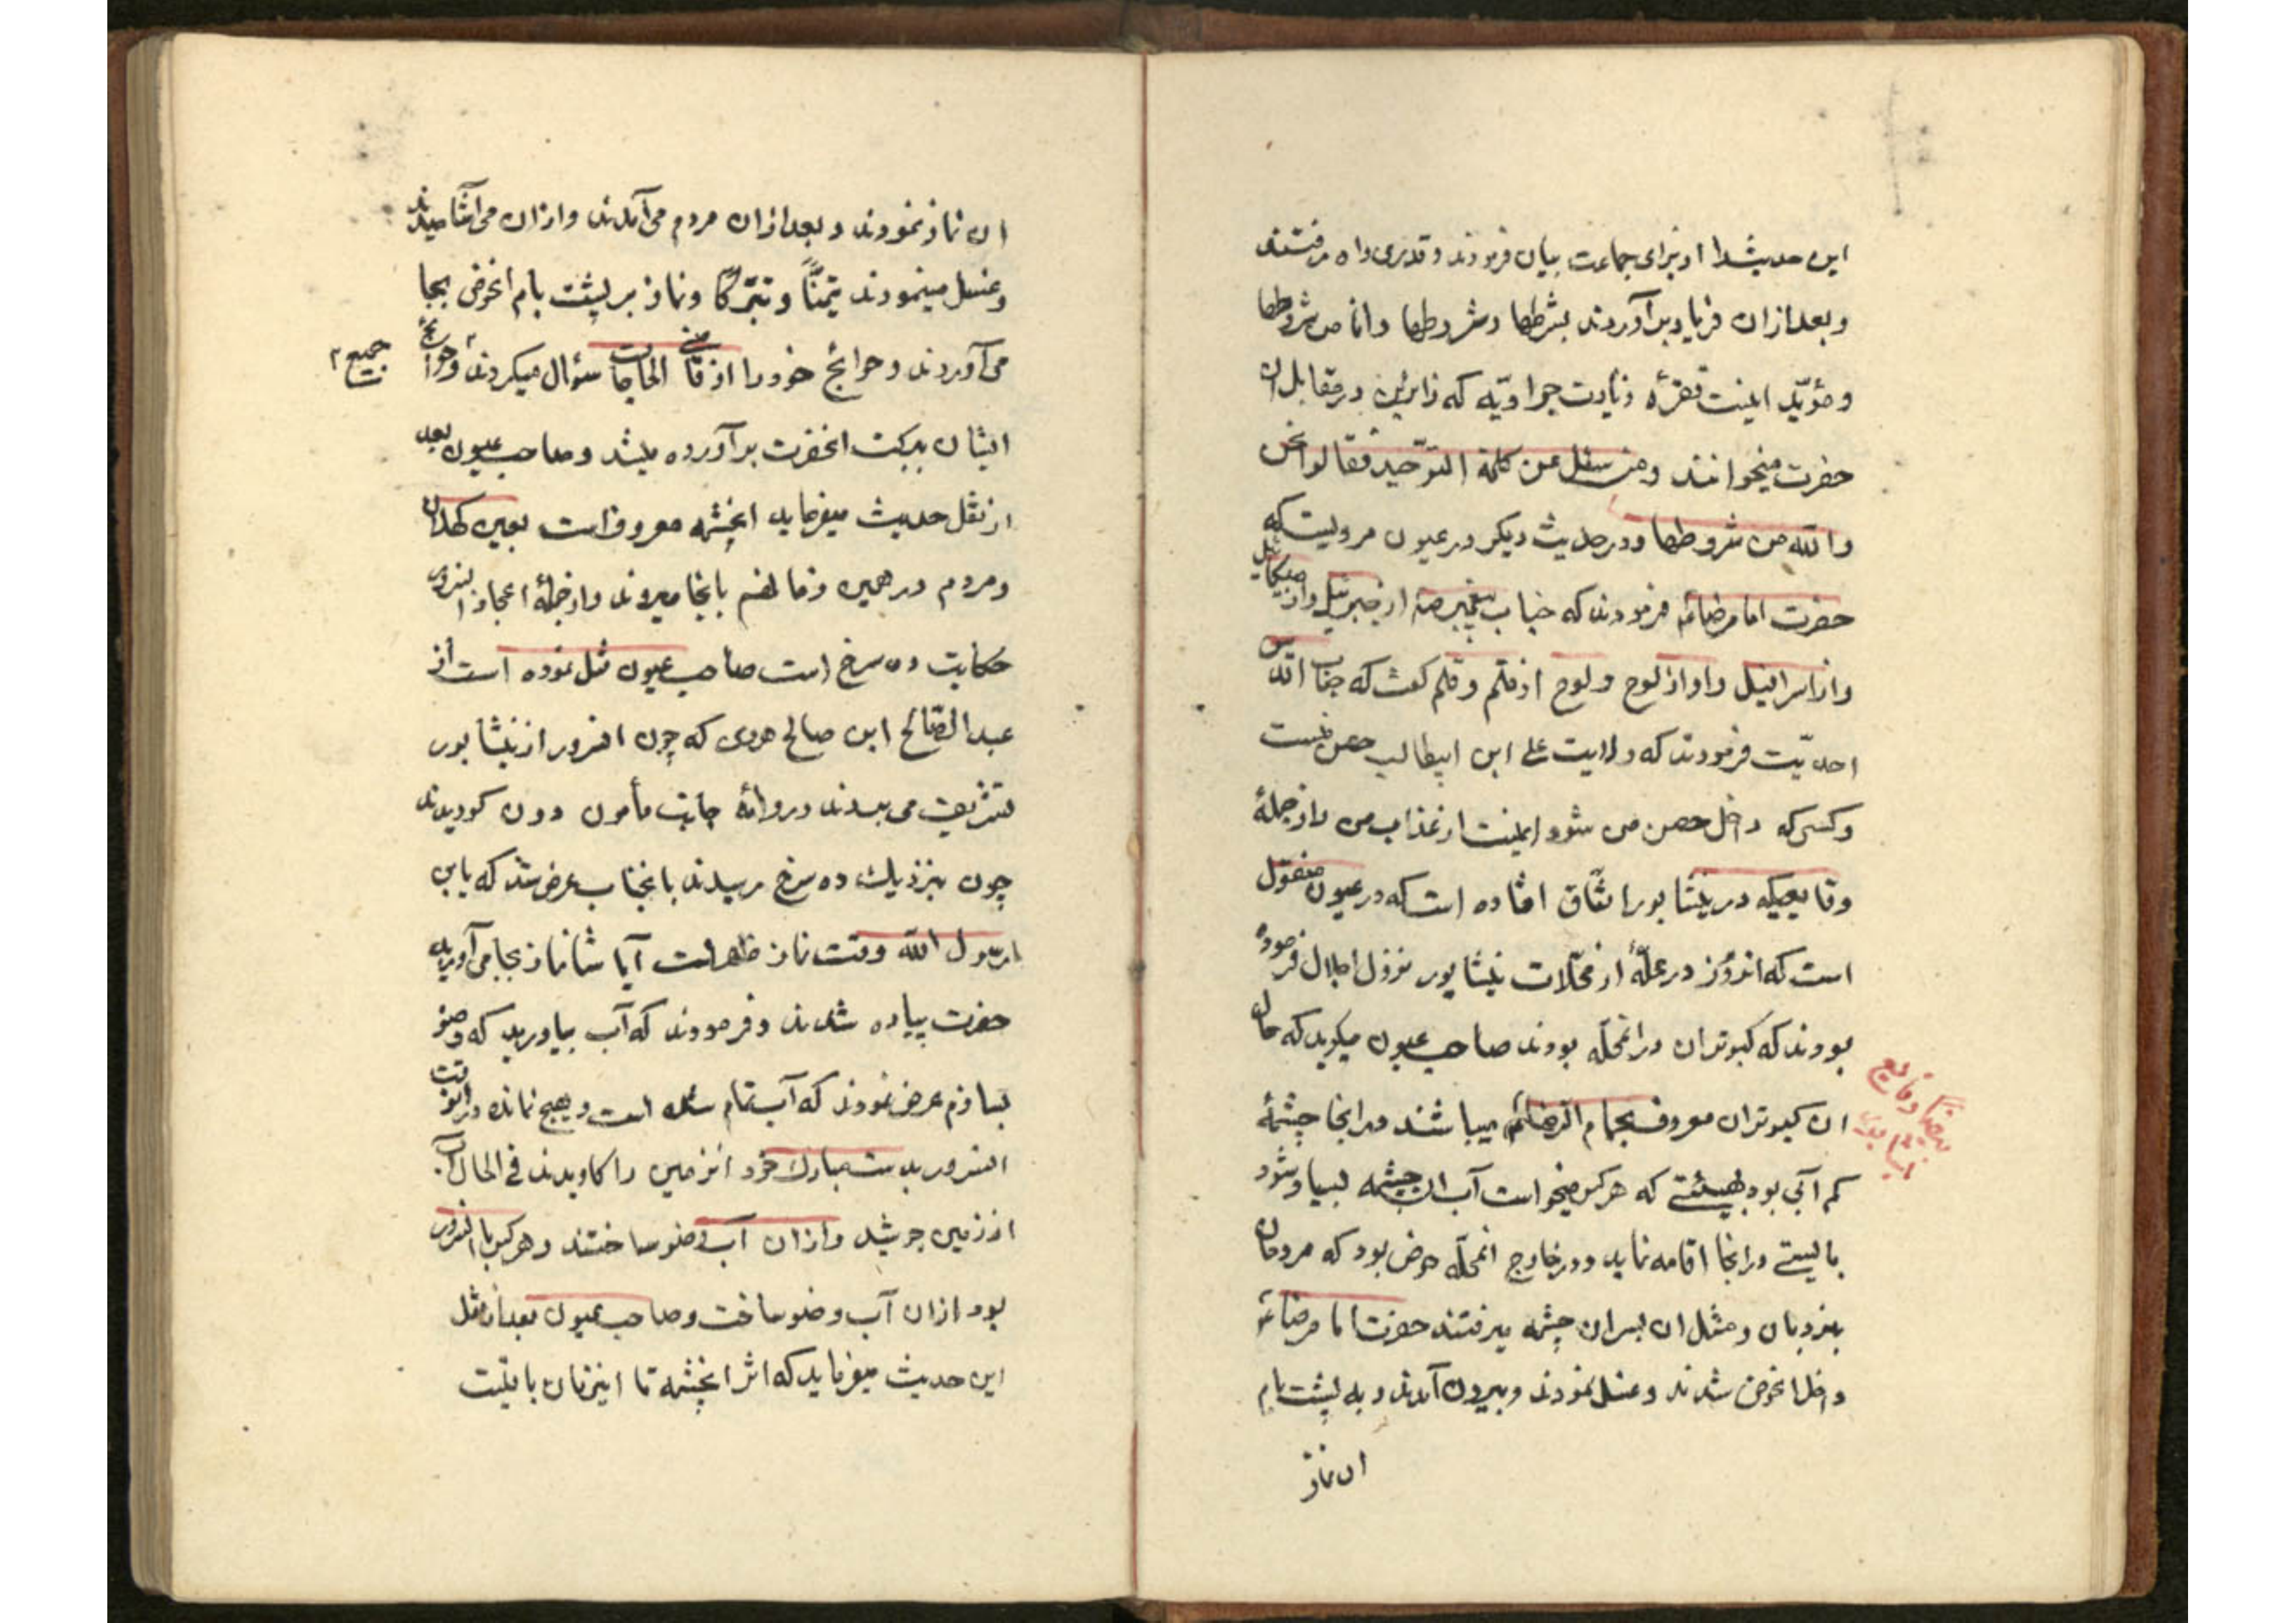 این حدیث را از برای جماعت بیان فرمودند و قدری راه رفتند
و بعد ازان فریاد برآوردند بشرطها و شروطها و انا من شروطها
و مؤیّد اینست فقرهٔ زیارت جوادیّه که زائرین در مقابل ان
حضرت میخوانند و من سئل عن کلمة التوحید فقالوا نحن
والله من شروطها و در حدیث دیکر در عیون مرویست که
حضرت امام رضاء۴م فرمودند که جناب پیغمبر ص از جبرئیل و از میکائیل
و از اسرافیل و او از لوح و لوح از قلم و قلم کفت که جناب اقدس
احدیّت فرمودند که ولایت علی ابن ابیطالب حصن منست
و کسی که داخل حصن من شود ایمنست از عذاب من و از جملهٔ
وقایعیکه در نیشابور اتّفاق افتاده است که در عیون منقول
است که انروز در محلّهٔ از محلّات نیشابور نزول اجلال فرموده
بودند که کبوتران در انمحلّه بودند صاحب عیون میکوید که حال
ان کبوتران معروف بحمام الرضا میباشند در انجا چشمهٔ
کم آبی بود بهیئتی که هر کس میخواست آب ان چشمه بسیار شود
بایستی در انجا اقامه نماید و در خارج انمحلّه حوض بود که مردمان
بنردبان و مثل ان بسر ان چشمه میرفتند حضرت امام رضاء
داخل انحوض شدند و غسل نمودند و بیرون آمدند و به پشت بام
ان نماز
بعضی از وقایع
نیشابور
ان نماز نمودند و بعد ازان مردم می آمدند و ازان می آشامیدند
و غسل مینمودند تیمّناً و تبرّکاً و نماز بر پشت بام انحوض بجا
می آوردند و حوائج خود را از قاضی الحاجات سؤال میکردند و حوائج
جمیع
ایشان ببرکت انحضرت برآورده میشد و صاحب عیون بعد
از نقل حدیث میفرماید انچشمه معروفست بعین کهلان
و مردم در همین زمان هم بانجا میروند و از جملهٔ اعجاز انسرور
حکایت ده سرخ است صاحب عیون نقل نموده است از
عبد الصّالح ابن صالح هروی که چون انسرور از نیشابور
تشریف می بردند و روانهٔ جانب مأمون دون کردیدند
چون بنزدیک ده سرخ رسیدند بانجناب عرض شد که یابن
رسول الله وقت نماز ظهر است آیا شما نماز بجا می آورید
حضرت پیاده شدند و فرمودند که آب بیاورید که وضو
بسازم عرض نمودند که آب تمام شده است و هیچ نمانده در انوقت
انسرور بدست مبارک خود انزمین را کاویدند فی الحال آب
از زمین جوشید و ازان آب وضو ساختند و هر کس با انسرور
بود ازان آب وضو ساخت و صاحب عیون بعد از نقل
این حدیث میفرماید که اثر انچشمه تا اینزمان باقیست